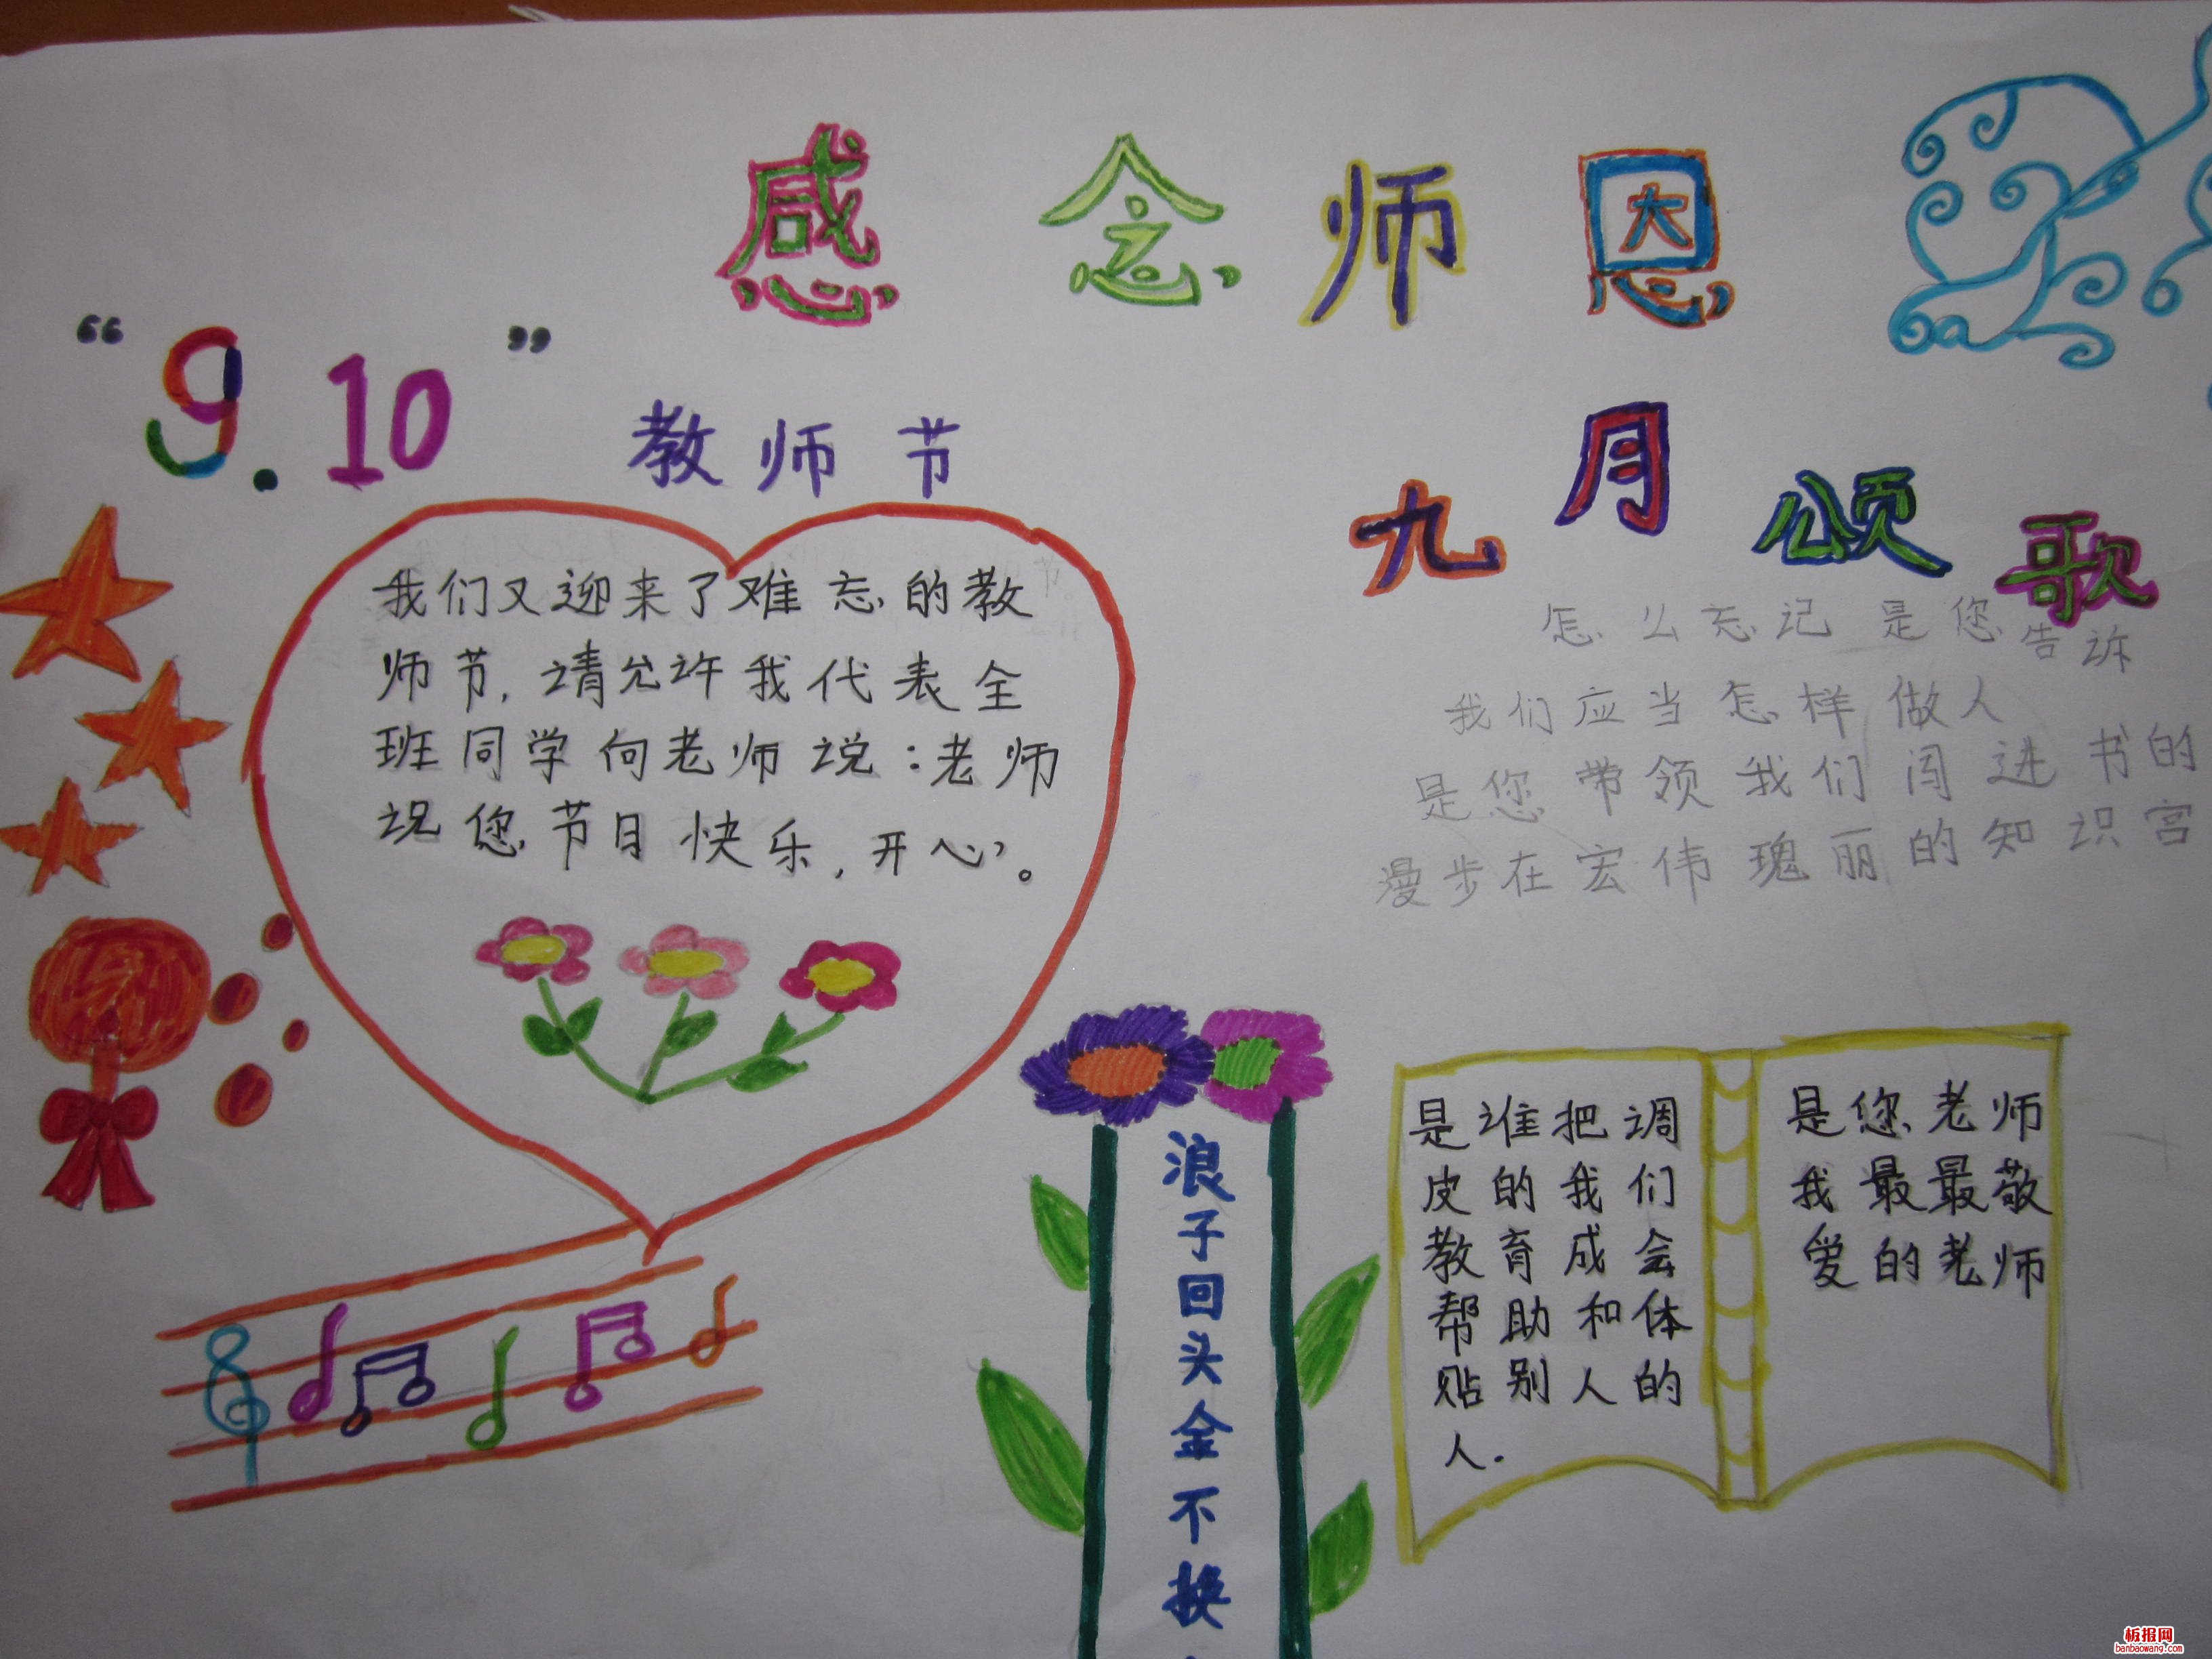 感念师恩
“9.10”
教师节
我们又迎来了难忘的教
师节,请允许我代表全
班同学向老师说:老师
祝您节日快乐,开心。
九月颂歌
怎么忘记是您告诉
我们应当怎样做人
是您带领我们闯进书的
漫步在宏伟瑰丽的知识宫
浪子回头金不换
是谁把调
皮的我们
教育成会
帮助和体
贴别人的
人.
是您老师
我最最敬
爱的老师
板报网
banbaowang.com